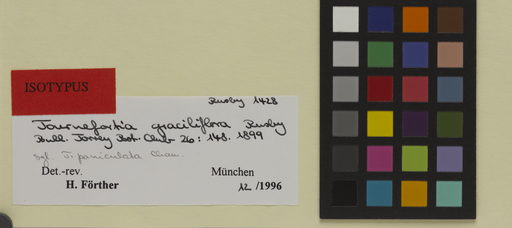 ISOTYPUS
Rusby 1428
Tournefortia graciliflora Rusby
Bull. Torrey Bot. Club 26: 148. 1899
syn. T. paniculata Cham.
Det.-rev. München
H. Förther 12 /1996